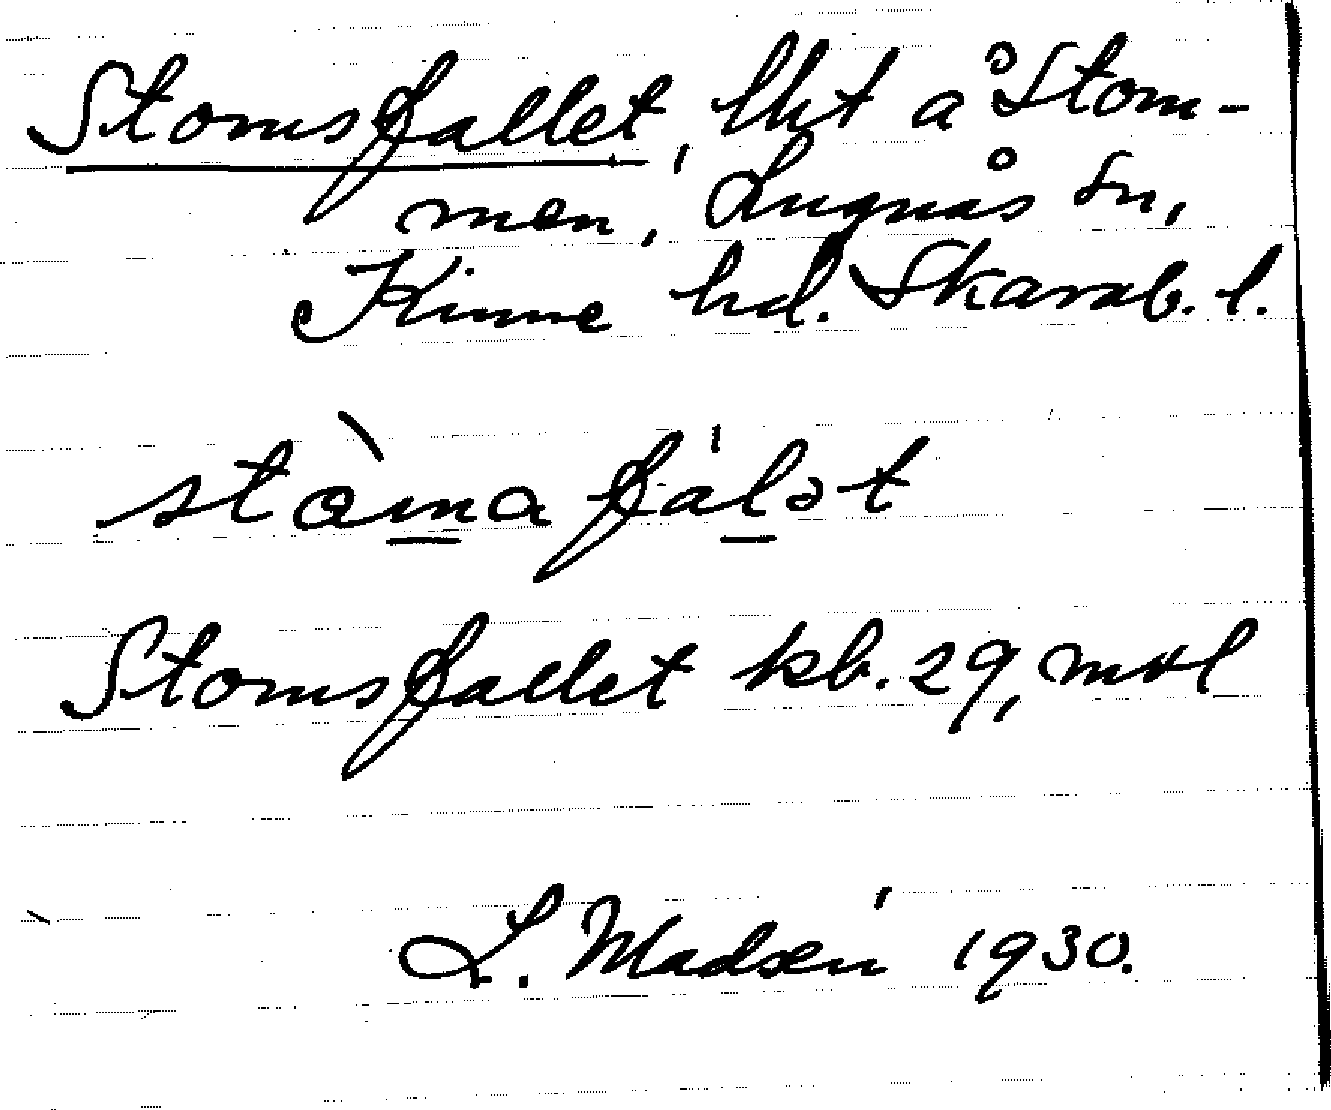 Stomsfallet, lht å Stom-
men, Lugnås sn,
Kinne hd. Skarab. l.
stòmafálət
Stomsfallet kb. 29, mol
L. Madsén 1930.